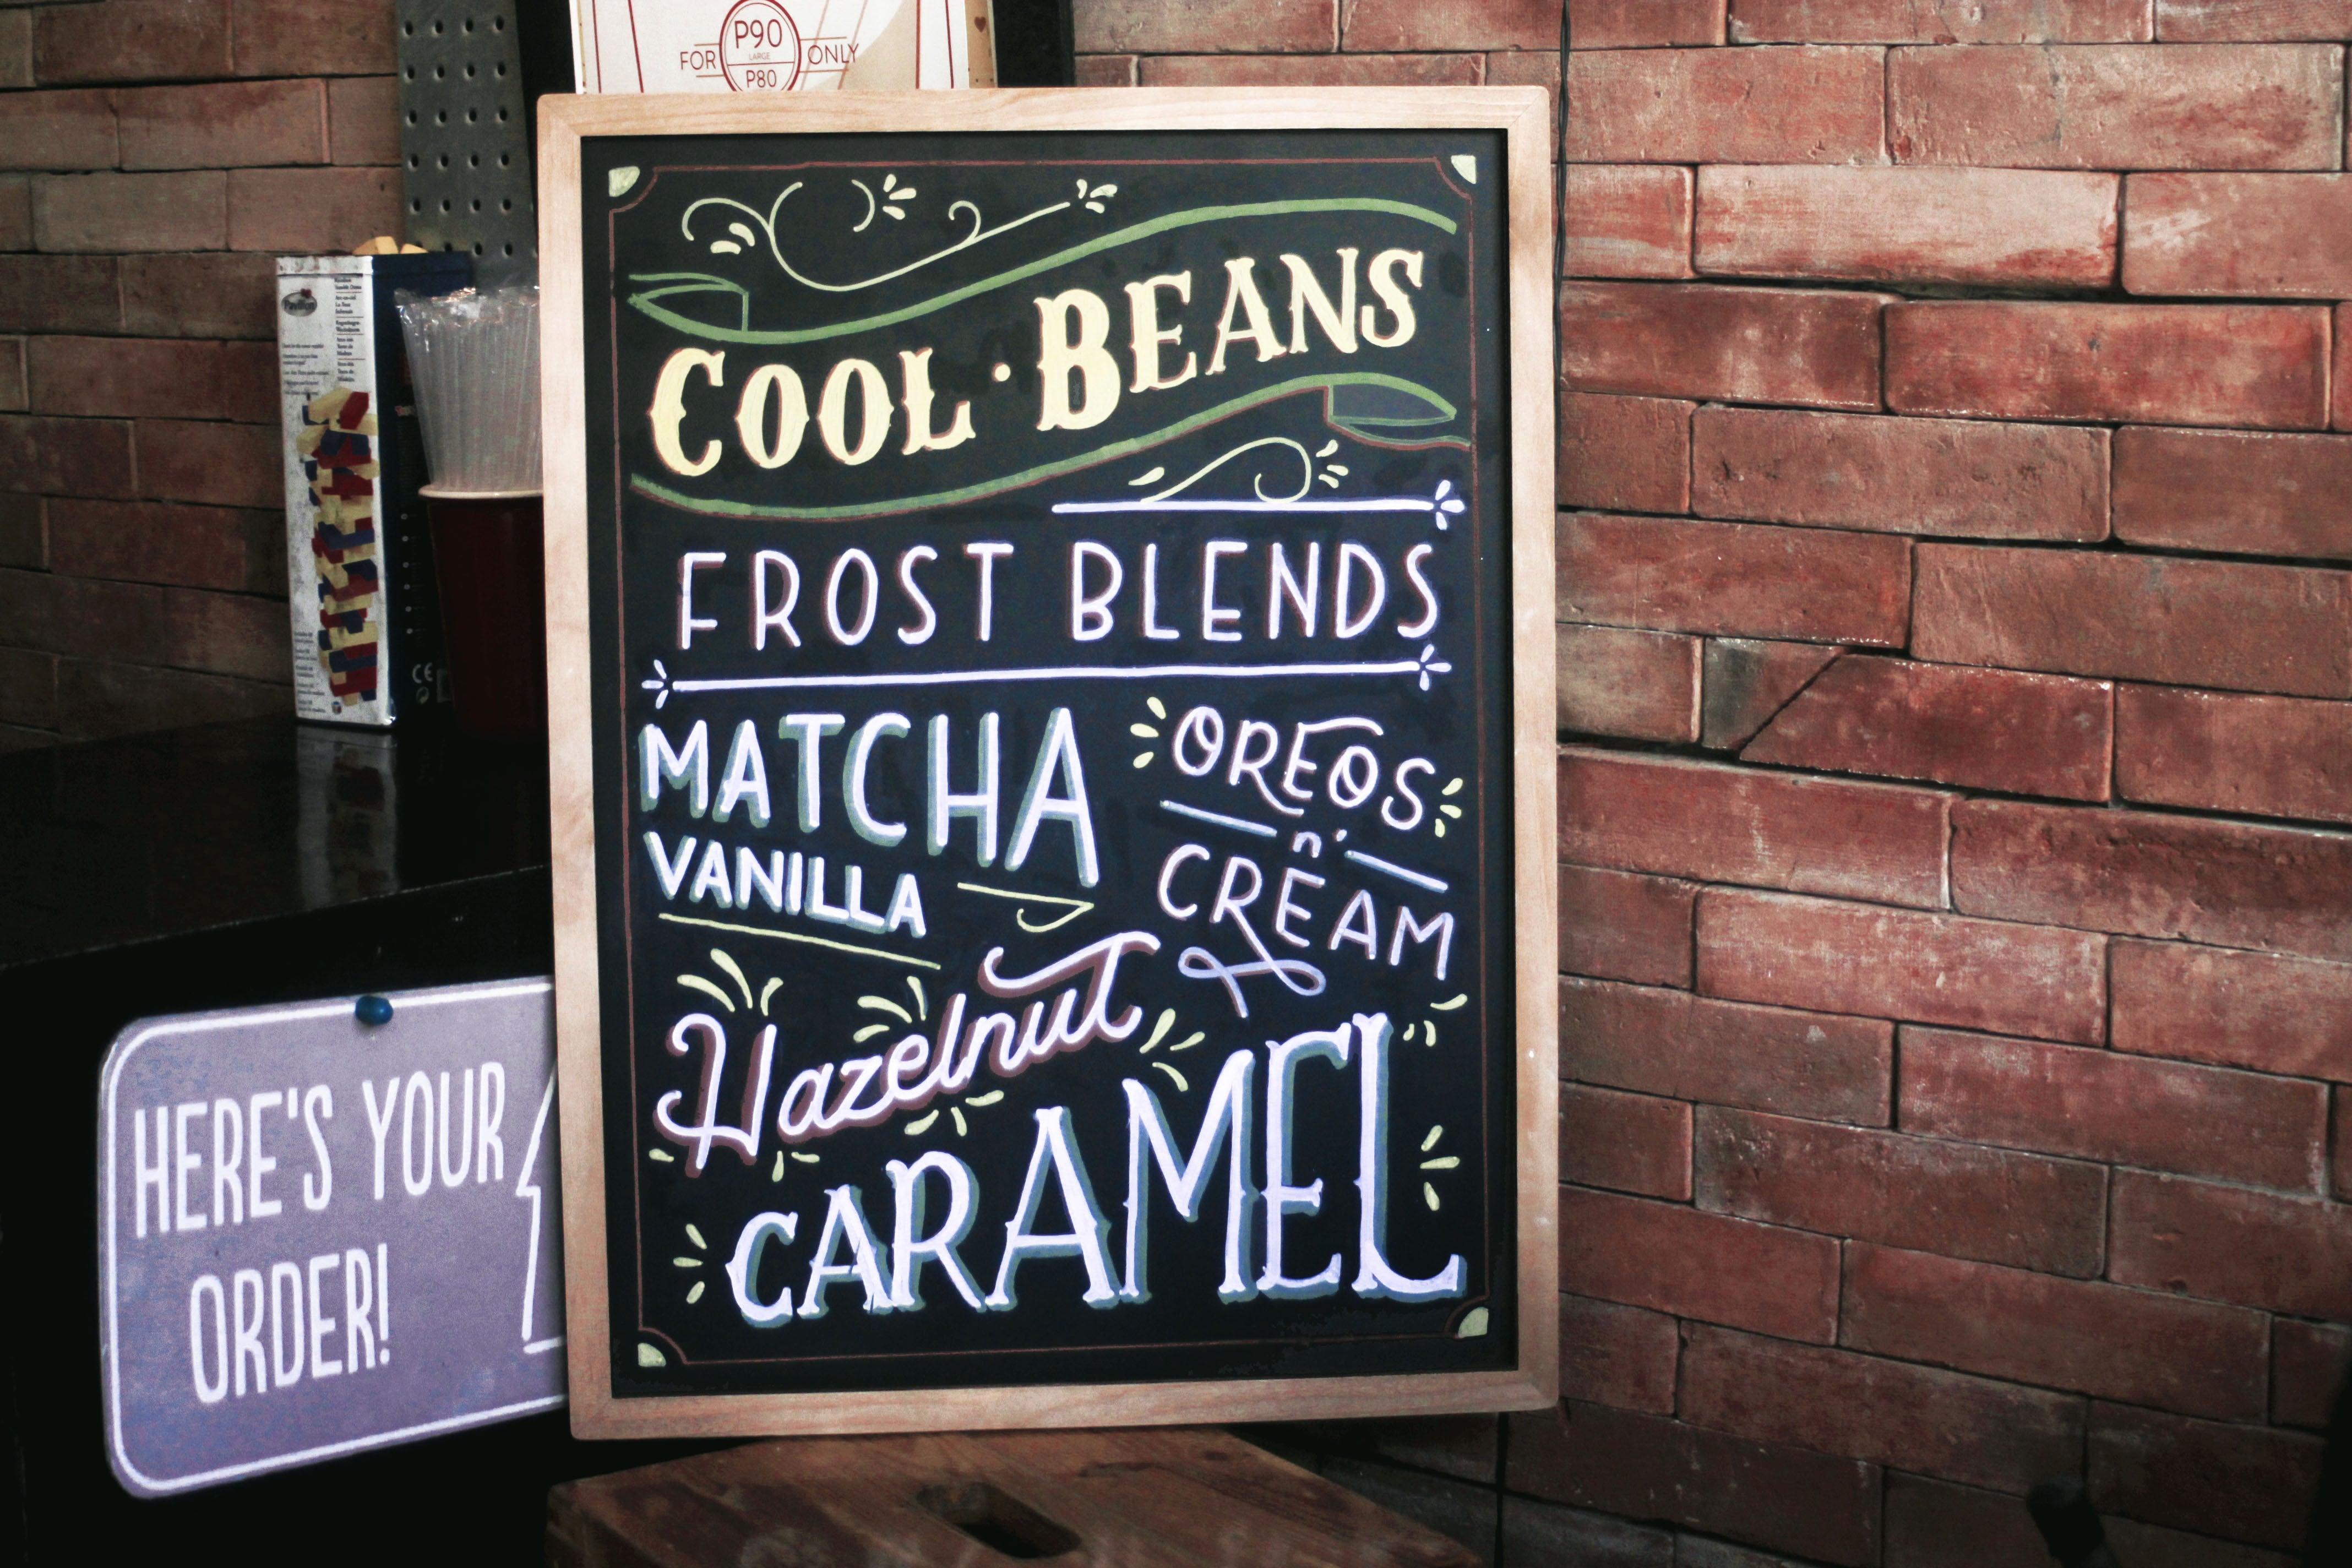 P90
FOR LARGE ONLY
P80
COOL · BEANS
FROST BLENDS
MATCHA
VANILLA
OREOS
n'
CREAM
Hazelnut
CARAMEL
HERE'S YOUR
ORDER!
CE